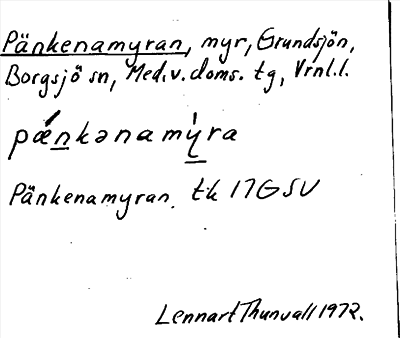 Pänkenamyran, myr, Grundsjön,
Borgsjö sn, Med.v. doms. tg, Vrnl.l.
pǽnkənamýra
Pänkenamyran. tk 17GSV
Lennart Thunvall 1972.